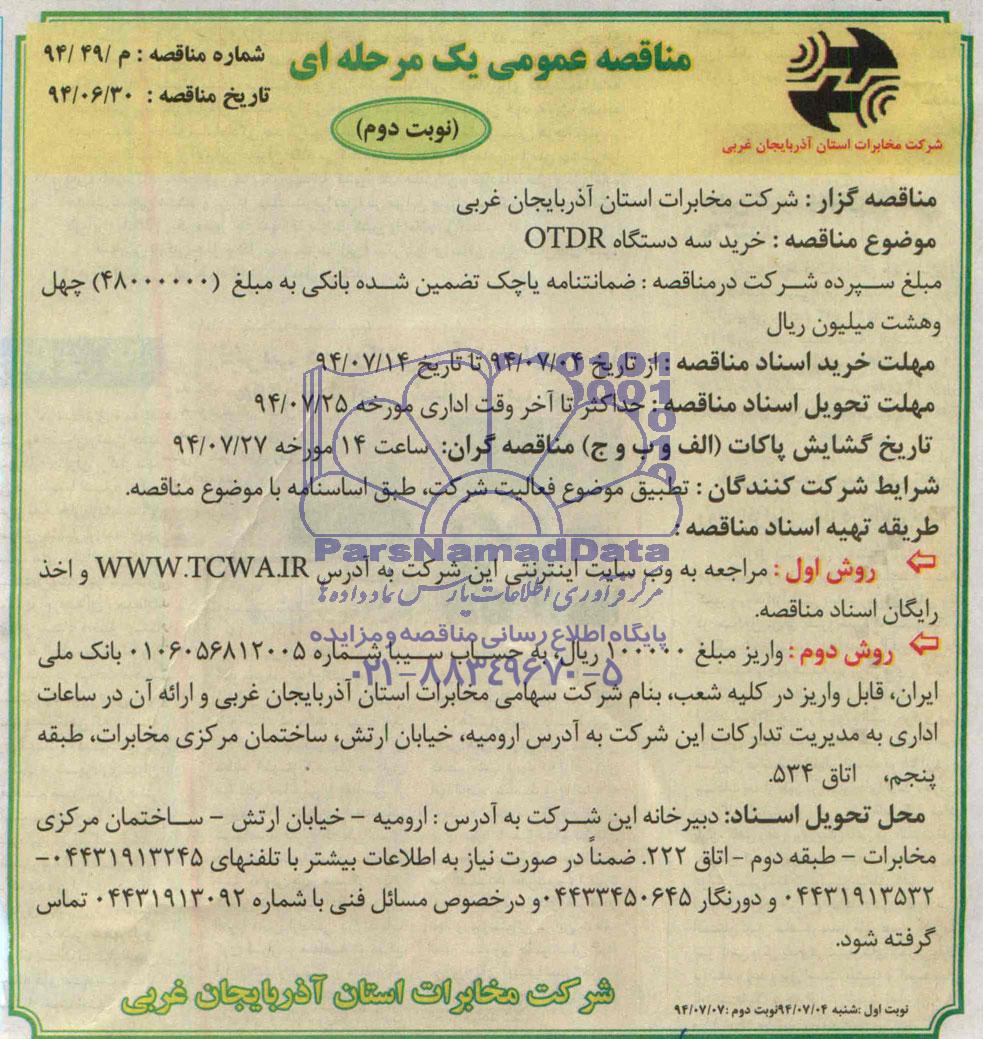 شماره مناقصه : م /۴۹ /۹۴
تاریخ مناقصه : ۹۴/۰۶/۳۰
مناقصه عمومی یک مرحله ای
(نوبت دوم)
شرکت مخابرات استان آذربایجان غربی
مناقصه گزار : شرکت مخابرات استان آذربایجان غربی
موضوع مناقصه : خرید سه دستگاه OTDR
مبلغ سپرده شرکت درمناقصه : ضمانتنامه یاچک تضمین شده بانکی به مبلغ (۴۸۰۰۰۰۰۰) چهل
وهشت میلیون ریال
مهلت خرید اسناد مناقصه : از تاریخ ۹۴/۰۷/۰۴ تا تاریخ ۹۴/۰۷/۱۴
مهلت تحویل اسناد مناقصه : حداکثر تا آخر وقت اداری مورخه ۹۴/۰۷/۲۵
تاریخ گشایش پاکات (الف و ب و ج) مناقصه گران: ساعت ۱۴ مورخه ۹۴/۰۷/۲۷
شرایط شرکت کنندگان : تطبیق موضوع فعالیت شرکت، طبق اساسنامه با موضوع مناقصه.
طریقه تهیه اسناد مناقصه :
ParsNamadData
روش اول : مراجعه به وب سایت اینترنتی این شرکت به آدرس WWW.TCWA.IR و اخذ
مرکز فرآوری اطلاعات پارس نماد داده ها
رایگان اسناد مناقصه.
پایگاه اطلاع رسانی مناقصه و مزایده
روش دوم : واریز مبلغ ۱۰۰۰۰۰۰ ریال، به حساب سیبا شماره ۰۱۰۶۰۵۶۸۱۲۰۰۵ بانک ملی
۰۲۱-۸۸۳۴۹۶۷۰-۵
ایران، قابل واریز در کلیه شعب، بنام شرکت سهامی مخابرات استان آذربایجان غربی و ارائه آن در ساعات
اداری به مدیریت تدارکات این شرکت به آدرس ارومیه، خیابان ارتش، ساختمان مرکزی مخابرات، طبقه
پنجم، اتاق ۵۳۴.
محل تحویل اسناد: دبیرخانه این شرکت به آدرس : ارومیه – خیابان ارتش – ساختمان مرکزی
مخابرات – طبقه دوم - اتاق ۲۲۲. ضمناً در صورت نیاز به اطلاعات بیشتر با تلفنهای ۰۴۴۳۱۹۱۳۲۴۵–
۰۴۴۳۱۹۱۳۵۳۲ و دورنگار ۰۴۴۳۳۴۵۰۶۴۵و درخصوص مسائل فنی با شماره ۰۴۴۳۱۹۱۳۰۹۲ تماس
گرفته شود.
شرکت مخابرات استان آذربایجان غربی
نوبت اول :شنبه ۹۴/۰۷/۰۴نوبت دوم :۹۴/۰۷/۰۷